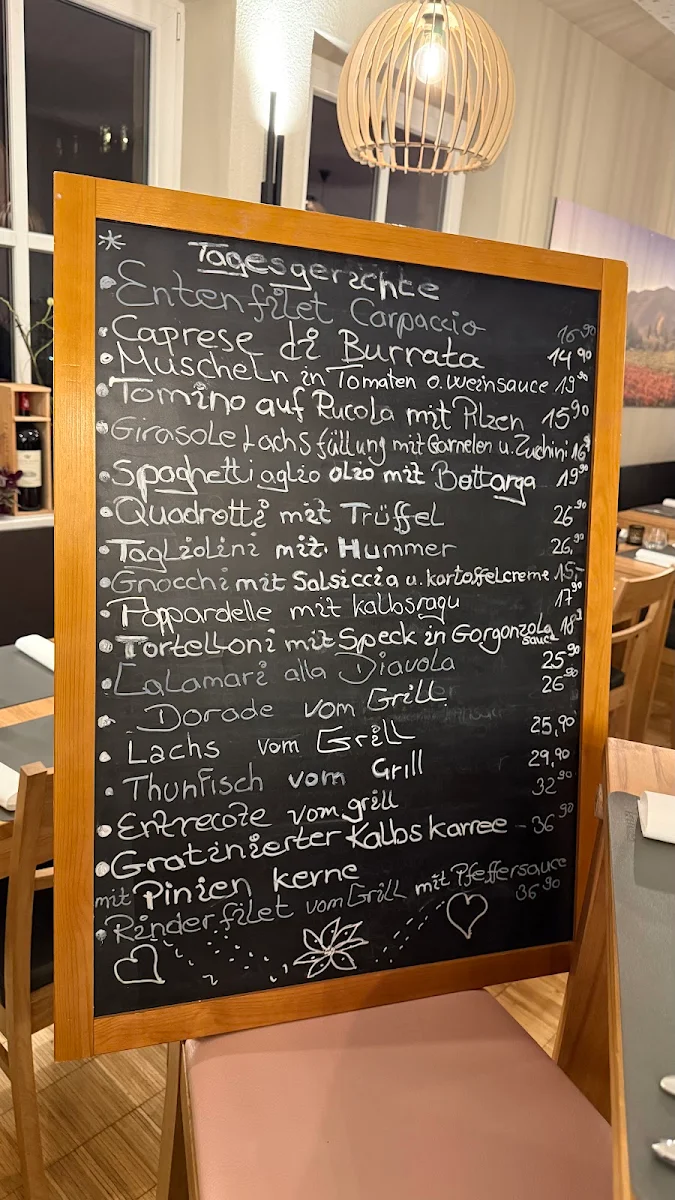 Tagesgerichte
Entenfilet Carpaccio 16⁹⁰
Caprese di Burrata 14⁹⁰
Muscheln in Tomaten o. weinsauce 19⁹⁰
Tomino auf Rucola mit Pilzen 15⁹⁰
Girasole Lachsfüllung mit Garnelen u. Zuchini 16⁹
Spaghetti aglio olio mit Bottarga 19⁹⁰
Quadrotti mit Trüffel 26⁹⁰
Tagliolini mit Hummer 26,⁹⁰
Gnocchi mit Salsiccia u. kartoffelcreme 15,-
Poppardelle mit kalbsragu 17⁹⁰
Tortelloni mit Speck in Gorgonzola sauce
Calamari alla Diavola 25⁹⁰
Dorade vom Grill 26⁹⁰
Lachs vom Grill 25,⁹⁰
Thunfisch vom Grill 29,⁹⁰
Entrecote vom grill 32⁹⁰
Gratinierter Kalbskarree - 36⁹⁰
mit Pinien kerne
Rinderfilet vom Grill mit Pfeffersauce 36⁹⁰